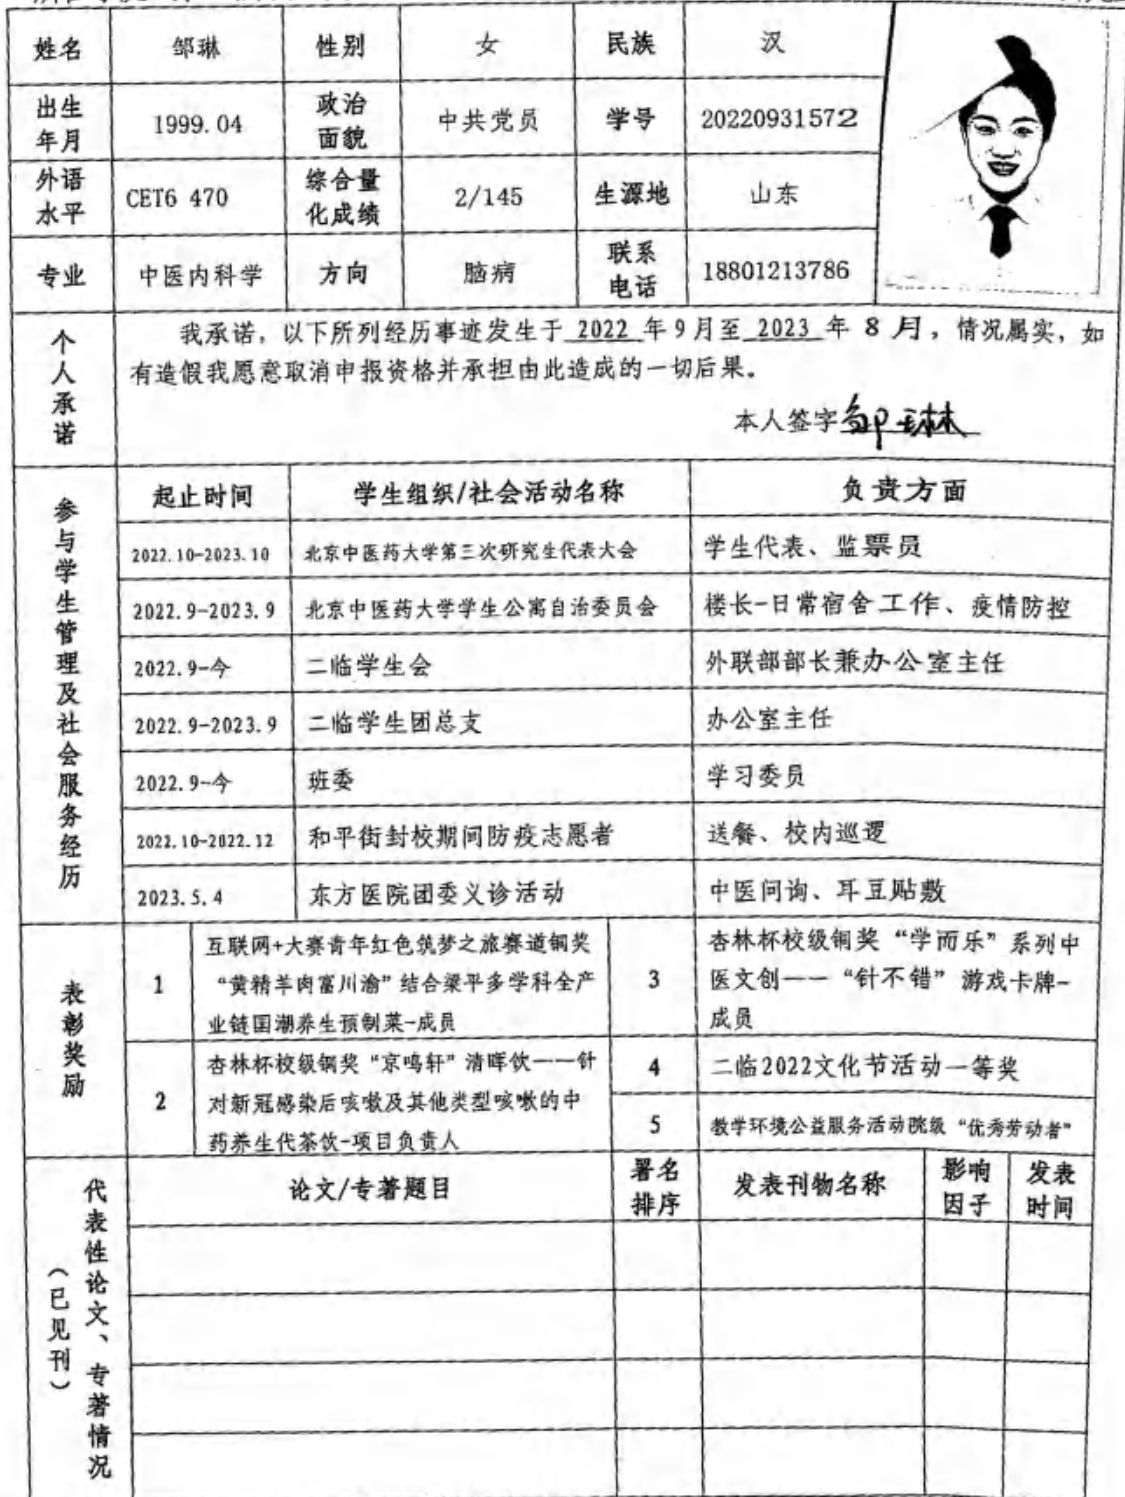 姓名 邹琳 性别 女 民族 汉
出生年月 1999.04 政治面貌 中共党员 学号 20220931572
外语水平 CET6 470 综合量化成绩 2/145 生源地 山东
专业 中医内科学 方向 脑病 联系电话 18801213786
个人承诺
我承诺，以下所列经历事迹发生于 2022 年9月至 2023 年 8 月，情况属实，如
有造假我愿意取消申报资格并承担由此造成的一切后果。
本人签字 邹琳
参与学生管理及社会服务经历
起止时间 学生组织/社会活动名称 负责方面
2022.10-2023.10 北京中医药大学第三次研究生代表大会 学生代表、监票员
2022.9-2023.9 北京中医药大学学生公寓自治委员会 楼长-日常宿舍工作、疫情防控
2022.9-今 二临学生会 外联部部长兼办公室主任
2022.9-2023.9 二临学生团总支 办公室主任
2022.9-今 班委 学习委员
2022.10-2022.12 和平街封校期间防疫志愿者 送餐、校内巡逻
2023.5.4 东方医院团委义诊活动 中医问询、耳豆贴敷
表彰奖励
1
互联网+大赛青年红色筑梦之旅赛道铜奖
“黄精羊肉富川渝”结合梁平多学科全产
业链国潮养生预制菜-成员
2
杏林杯校级铜奖“京鸣轩”清晖饮——针
对新冠感染后咳嗽及其他类型咳嗽的中
药养生代茶饮-项目负责人
3
杏林杯校级铜奖“学而乐”系列中
医文创——“针不错”游戏卡牌-
成员
4 二临2022文化节活动一等奖
5 教学环境公益服务活动院级“优秀劳动者”
代表性论文、专著情况
（已见刊）
论文/专著题目 署名排序 发表刊物名称 影响因子 发表时间